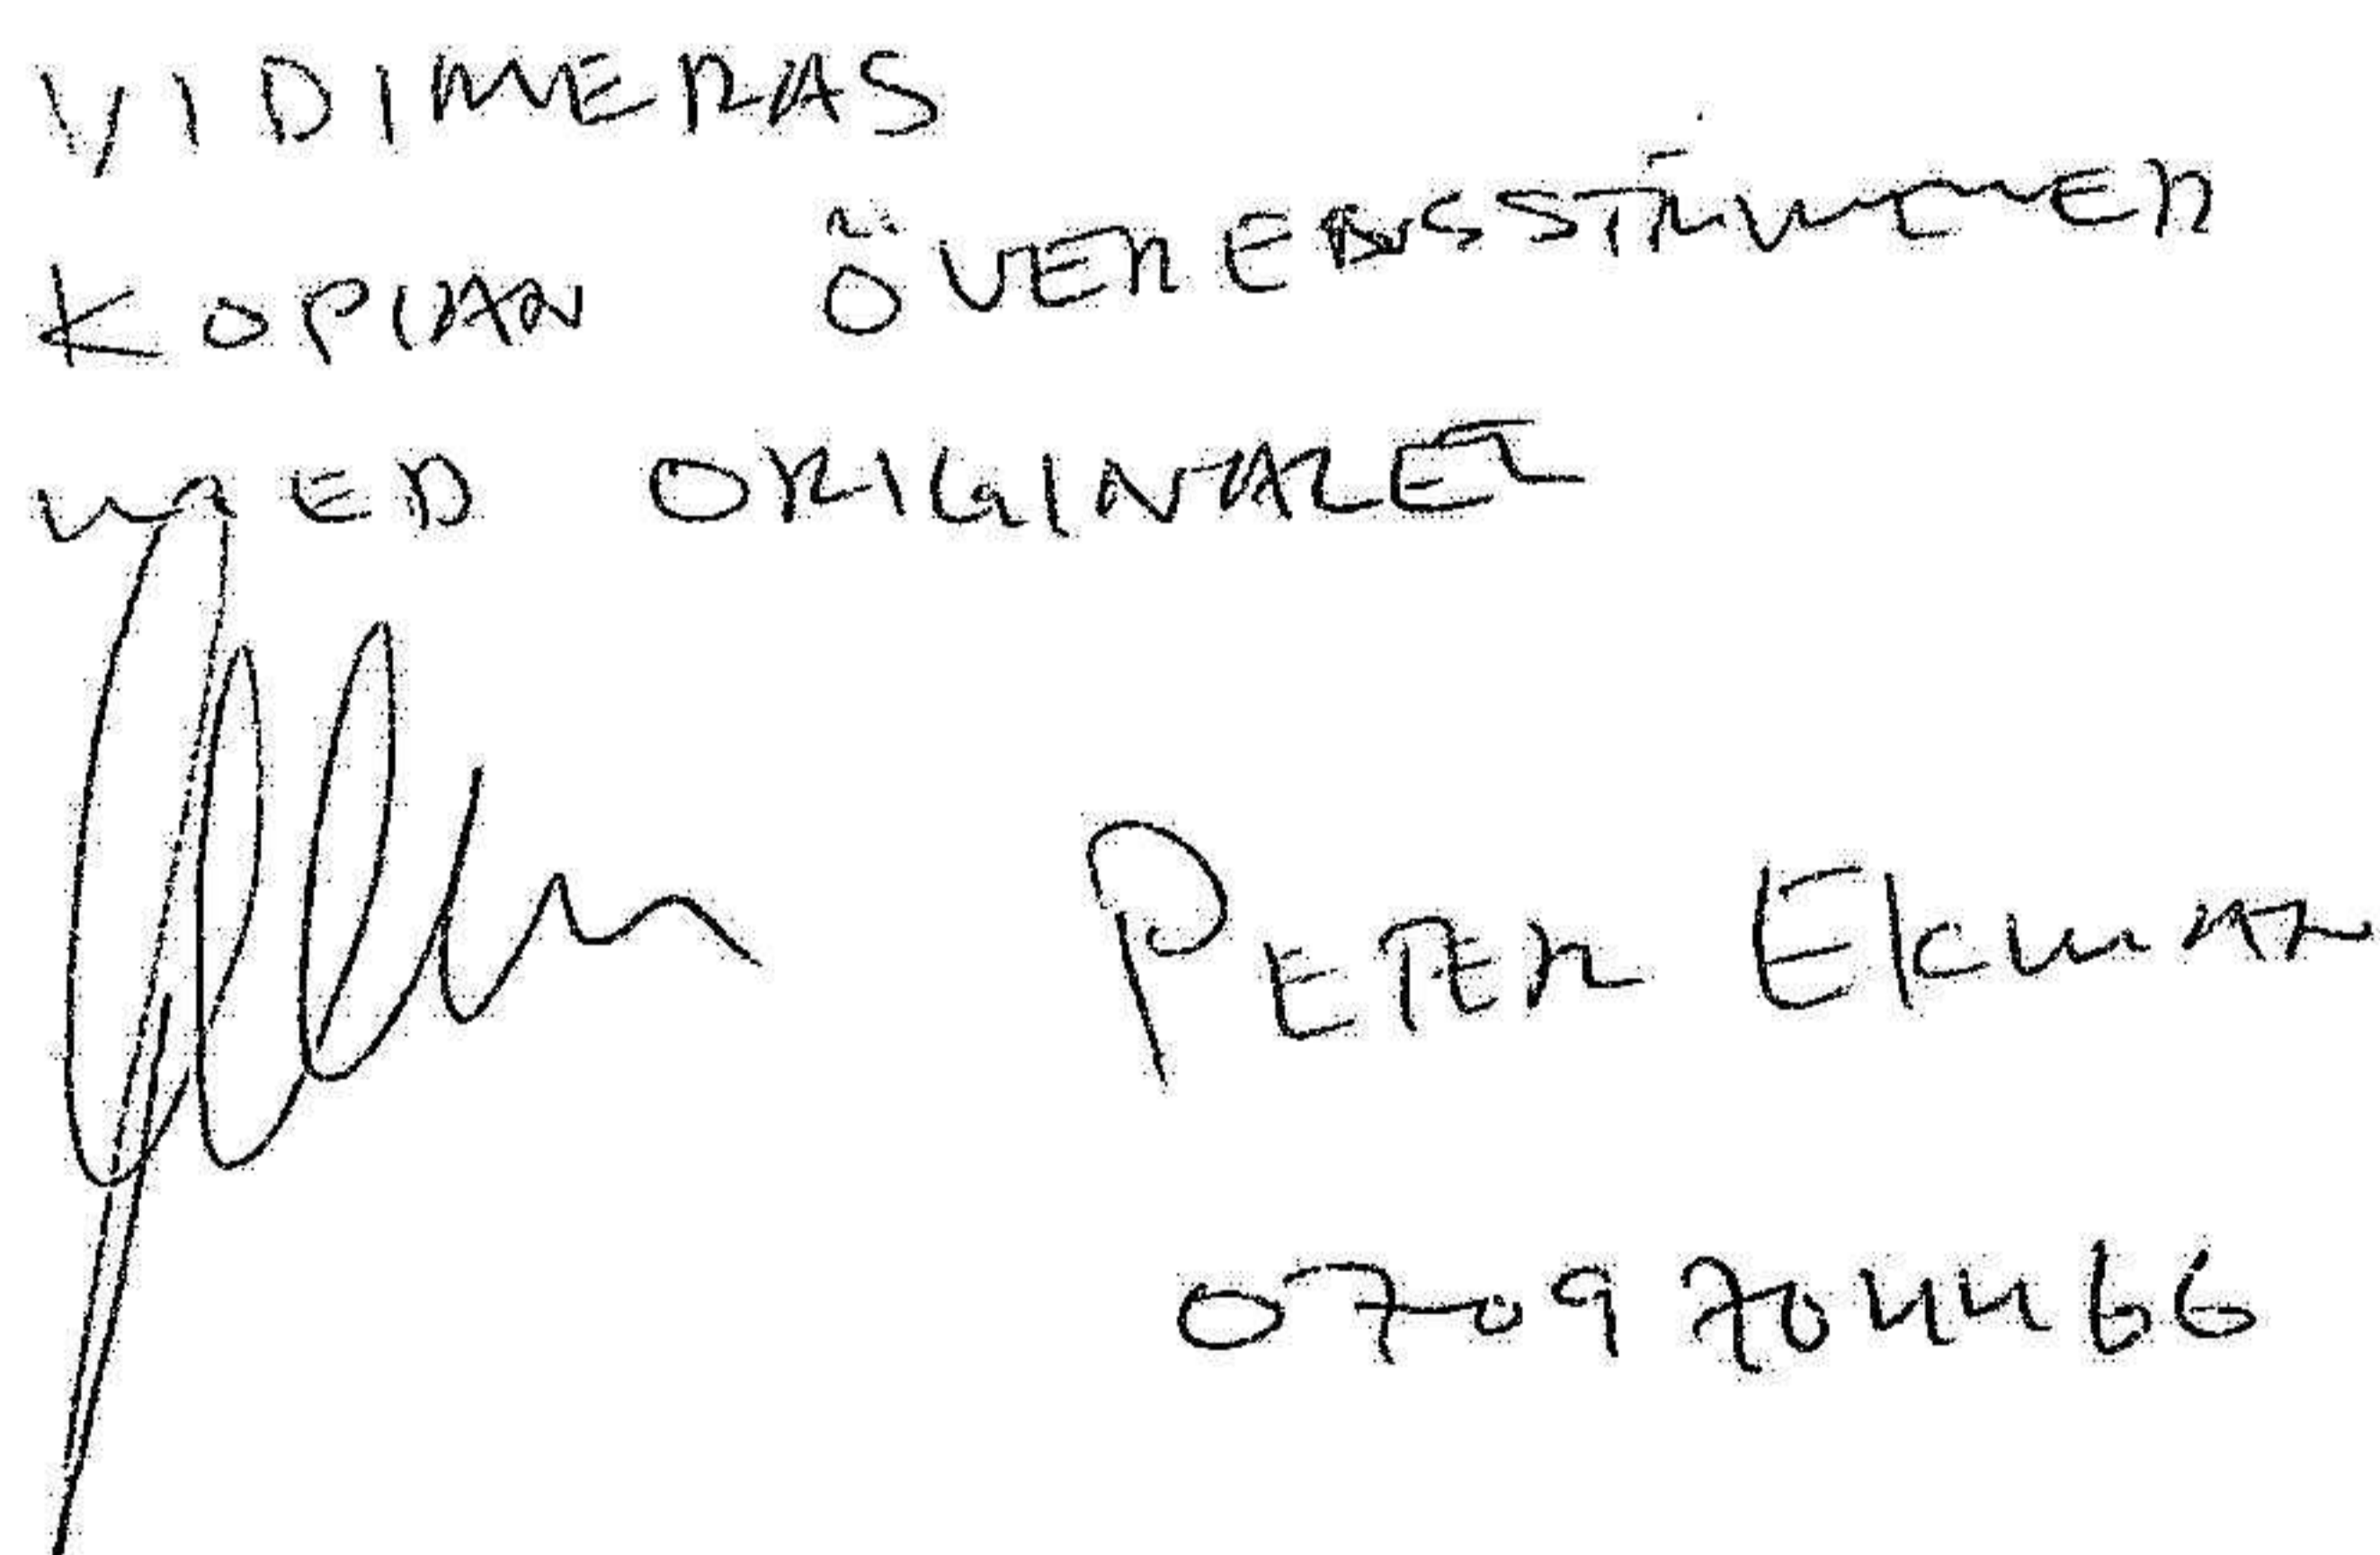 VIDIMERAS
KOPIAN ÖVERENSSTÄMMER
MED ORIGINALET
PETER EKMAN
0709704466